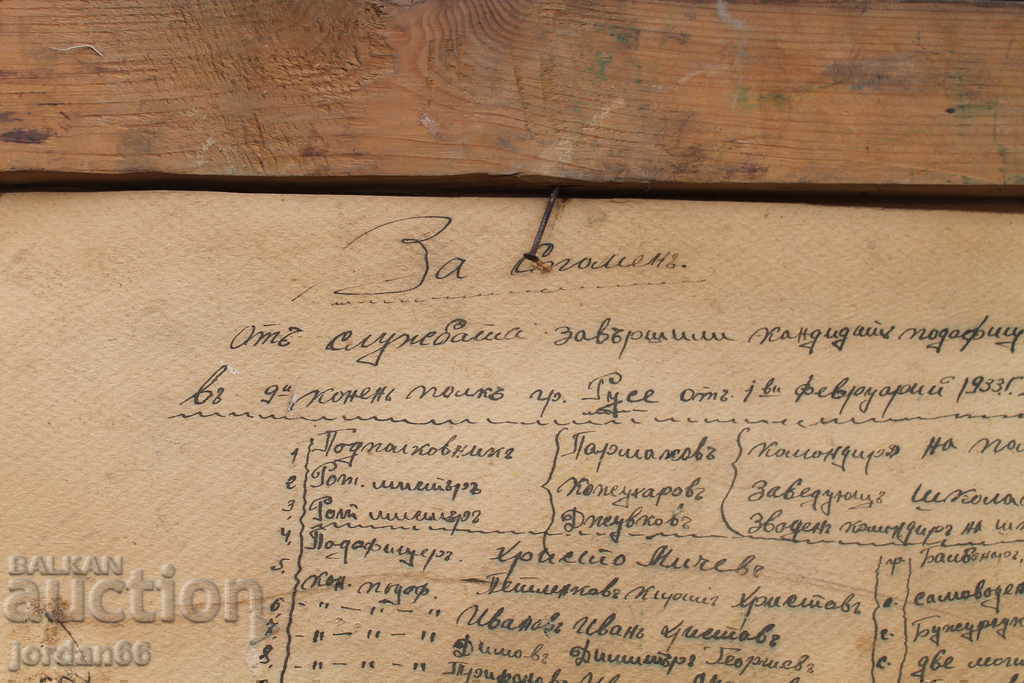 За Споменъ.
отъ службата завършили кандидатъ подофиц
въ 9и коненъ полкъ гр. Русе отъ 1ви февруарий 1933г.
1 Подполковникъ Пармаковъ Командиръ на пол
2 Рот. мистъръ Кожухаровъ Заведующъ школа
3 Рот мистъръ Джувковъ Взводенъ командиръ на шк
4. Подофицеръ. Христо Мичевъ гр. Баль
5. кон. подоф. Петленковъ Кирилъ Христовъ с. самоводен
6 - " - " - " Ивановъ Иванъ Христовъ с. Бужур
7. - " - " - " Димовъ Димитъръ Георгиев с. две моги
8. Иван
BALKAN
auction
jordan66